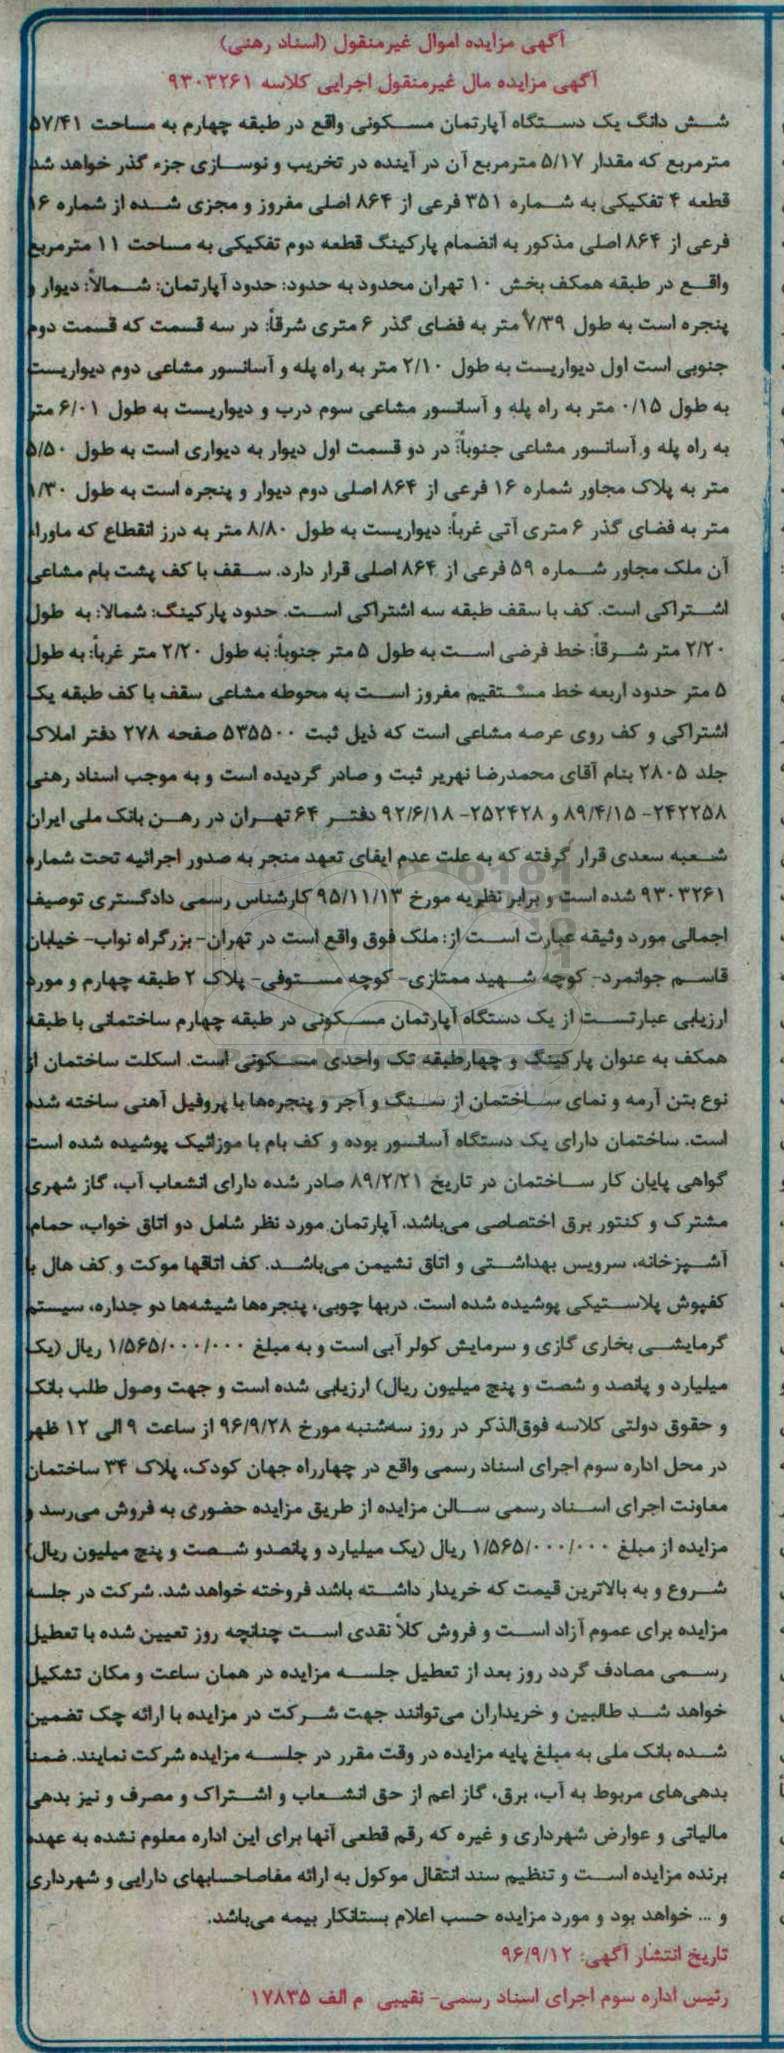 آگهی مزایده اموال غیرمنقول (اسناد رهنی)
آگهی مزایده مال غیرمنقول اجرایی کلاسه ۹۳۰۳۲۶۱
شش دانگ یک دستگاه آپارتمان مسکونی واقع در طبقه چهارم به مساحت ۵۷/۴۱
مترمربع که مقدار ۵/۱۷ مترمربع آن در آینده در تخریب و نوسازی جزء گذر خواهد شد
قطعه ۴ تفکیکی به شماره ۳۵۱ فرعی از ۸۶۴ اصلی مفروز و مجزی شده از شماره ۱۶
فرعی از ۸۶۴ اصلی مذکور به انضمام پارکینگ قطعه دوم تفکیکی به مساحت ۱۱ مترمربع
واقع در طبقه همکف بخش ۱۰ تهران محدود به حدود: حدود آپارتمان: شمالاً: دیوار و
پنجره است به طول ۷/۳۹ متر به فضای گذر ۶ متری شرقاً: در سه قسمت که قسمت دوم
جنوبی است اول دیواریست به طول ۲/۱۰ متر به راه پله و آسانسور مشاعی دوم دیواریست
به طول ۰/۱۵ متر به راه پله و آسانسور مشاعی سوم درب و دیواریست به طول ۶/۰۱ متر
به راه پله و آسانسور مشاعی جنوباً: در دو قسمت اول دیوار به دیواری است به طول ۵/۵۰
متر به پلاک مجاور شماره ۱۶ فرعی از ۸۶۴ اصلی دوم دیوار و پنجره است به طول ۱/۳۰
متر به فضای گذر ۶ متری آتی غرباً: دیواریست به طول ۸/۸۰ متر به درز انقطاع که ماوراء
آن ملک مجاور شماره ۵۹ فرعی از ۸۶۴ اصلی قرار دارد. سقف با کف پشت بام مشاعی
اشتراکی است. کف با سقف طبقه سه اشتراکی است. حدود پارکینگ: شمالا: به طول
۲/۲۰ متر شرقاً: خط فرضی است به طول ۵ متر جنوباً: به طول ۲/۲۰ متر غرباً: به طول
۵ متر حدود اربعه خط مستقیم مفروز است به محوطه مشاعی سقف با کف طبقه یک
اشتراکی و کف روی عرصه مشاعی است که ذیل ثبت ۵۳۵۵۰۰ صفحه ۲۷۸ دفتر املاک
جلد ۲۸۰۵ بنام آقای محمدرضا نهریر ثبت و صادر گردیده است و به موجب اسناد رهنی
۲۴۲۲۵۸- ۸۹/۴/۱۵ و ۲۵۲۴۲۸- ۹۲/۶/۱۸ دفتر ۶۴ تهران در رهن بانک ملی ایران
شعبه سعدی قرار گرفته که به علت عدم ایفای تعهد منجر به صدور اجرائیه تحت شماره
۹۳۰۳۲۶۱ شده است و برابر نظریه مورخ ۹۵/۱۱/۱۳ کارشناس رسمی دادگستری توصیف
اجمالی مورد وثیقه عبارت است از: ملک فوق واقع است در تهران- بزرگراه نواب- خیابان
قاسم جوانمرد- کوچه شهید ممتازی- کوچه مستوفی- پلاک ۲ طبقه چهارم و مورد
ارزیابی عبارتست از یک دستگاه آپارتمان مسکونی در طبقه چهارم ساختمانی با طبقه
همکف به عنوان پارکینگ و چهارطبقه تک واحدی مسکونی است. اسکلت ساختمان از
نوع بتن آرمه و نمای ساختمان از سنگ و آجر و پنجره‌ها با پروفیل آهنی ساخته شده
است. ساختمان دارای یک دستگاه آسانسور بوده و کف بام با موزائیک پوشیده شده است
گواهی پایان کار ساختمان در تاریخ ۸۹/۲/۲۱ صادر شده دارای انشعاب آب، گاز شهری
مشترک و کنتور برق اختصاصی می‌باشد. آپارتمان مورد نظر شامل دو اتاق خواب، حمام،
آشپزخانه، سرویس بهداشتی و اتاق نشیمن می‌باشد. کف اتاقها موکت و کف هال با
کفپوش پلاستیکی پوشیده شده است. دربها چوبی، پنجره‌ها شیشه‌ها دو جداره، سیستم
گرمایشی بخاری گازی و سرمایش کولر آبی است و به مبلغ ۱/۵۶۵/۰۰۰/۰۰۰ ریال (یک
میلیارد و پانصد و شصت و پنج میلیون ریال) ارزیابی شده است و جهت وصول طلب بانک
و حقوق دولتی کلاسه فوق‌الذکر در روز سه‌شنبه مورخ ۹۶/۹/۲۸ از ساعت ۹ الی ۱۲ ظهر
در محل اداره سوم اجرای اسناد رسمی واقع در چهارراه جهان کودک، پلاک ۳۴ ساختمان
معاونت اجرای اسناد رسمی سالن مزایده از طریق مزایده حضوری به فروش می‌رسد و
مزایده از مبلغ ۱/۵۶۵/۰۰۰/۰۰۰ ریال (یک میلیارد و پانصدو شصت و پنج میلیون ریال)
شروع و به بالاترین قیمت که خریدار داشته باشد فروخته خواهد شد. شرکت در جلسه
مزایده برای عموم آزاد است و فروش کلاً نقدی است چنانچه روز تعیین شده با تعطیل
رسمی مصادف گردد روز بعد از تعطیل جلسه مزایده در همان ساعت و مکان تشکیل
خواهد شد طالبین و خریداران می‌توانند جهت شرکت در مزایده با ارائه چک تضمین
شده بانک ملی به مبلغ پایه مزایده در وقت مقرر در جلسه مزایده شرکت نمایند. ضمناً
بدهی‌های مربوط به آب، برق، گاز اعم از حق انشعاب و اشتراک و مصرف و نیز بدهی
مالیاتی و عوارض شهرداری و غیره که رقم قطعی آنها برای این اداره معلوم نشده به عهده
برنده مزایده است و تنظیم سند انتقال موکول به ارائه مفاصاحسابهای دارایی و شهرداری
و ... خواهد بود و مورد مزایده حسب اعلام بستانکار بیمه می‌باشد.
تاریخ انتشار آگهی: ۹۶/۹/۱۲
رئیس اداره سوم اجرای اسناد رسمی- نقیبی م الف ۱۷۸۳۵